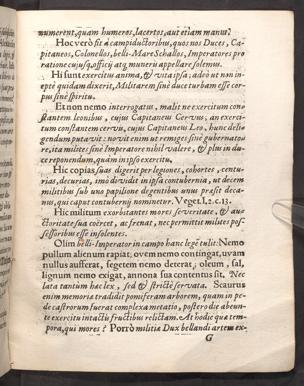 numerent, quam humeros, lacertos, aut etiam manus?
Hoc verò fit à campiductoribus, quos nos Duces, Ca-
pitaneos, Colonellos, belli-Mare Schallos, Imperatores pro
ratione cujusq; officij atq; muneris appellare solemus.
Hi sunt exercitus anima, & vita ipsa; adeò ut non in-
eptè quidam dixerit, Militarem sine duce turbam esse cor-
pus sine spiritu.
Et non nemo interrogatus, malit ne exercitum con-
stantem leonibus, cujus Capitaneus Cervus, an exerci-
tum constantem cervis, cujus Capitaneus Leo, hunc delig-
gendum putavit: novit enim ut remiges sine gubernato-
re, ita milites sine Imperatore nihil valere, & plus in du-
ce reponendum, quàm in ipso exercitu.
Hic copias suas digerit per legiones, cohortes, centu-
rias, decurias, imò dividit in ipsa contubernia, ut decem
militibus sub uno papilione degentibus unus præsit deca-
nus, qui caput contubernij nominetur. Veget. l. 2. c. 13.
Hic militum exorbitantes mores severitate, & au-
ctoritate sua coërcet, ac frenat, nec permittit milites pos-
sessoribus esse insolentes.
Olim belli-Imperator in campo hanc legē tulit: Nemo
pullum alienum rapiat; ovem nemo contingat, uvam
nullus aufferat, segetem nemo deterat; oleum, sal,
lignum nemo exigat, annona sua contentus sit. Nec
lata tantùm hæc lex, sed & strictè servata. Scaurus
enim memoria tradidit pomiferam arborem, quam in pe-
de castrorum fuerat complexa metatio, postero die abeun-
te exercitu intactis fructibus relictam. At hodie qua tem-
pora, qui mores? Porrò militiæ Dux bellandi artem ex-
G